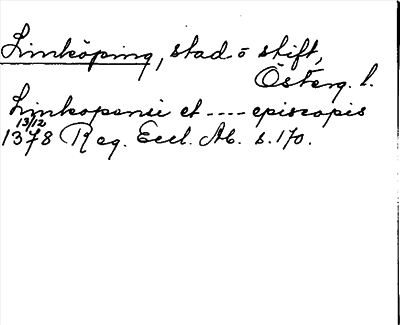 Linköping, stad o stift,
Österg. l.
Linkopensi et ---- episcopis
13/12
1378 Reg. Eccl. Ab. s. 170.